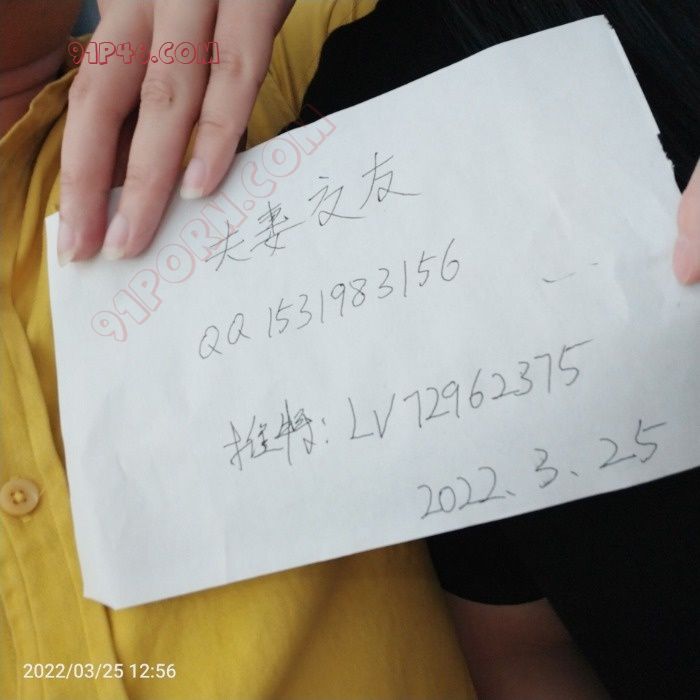 91P46.COM
夫妻交友
91PORN.COM
QQ 1531983156
推特: LV72962375
2022.3.25
2022/03/25 12:56